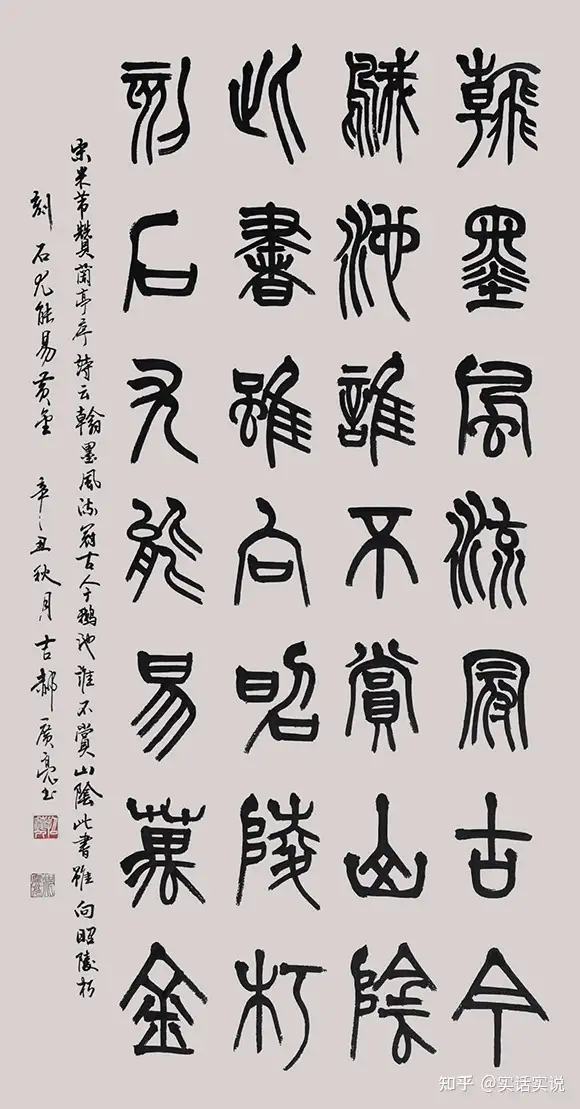 翰墨風流冠古今
鵝池誰不賞山陰
此書雖向昭陵朽
刻石尤能易萬金
宋米芾贊蘭亭序詩云翰墨風流冠古今鵝池誰不賞山陰此書雖向昭陵朽
刻石尤能易黄金 辛丑秋月吉郝廣亮书
知乎 @实话实说